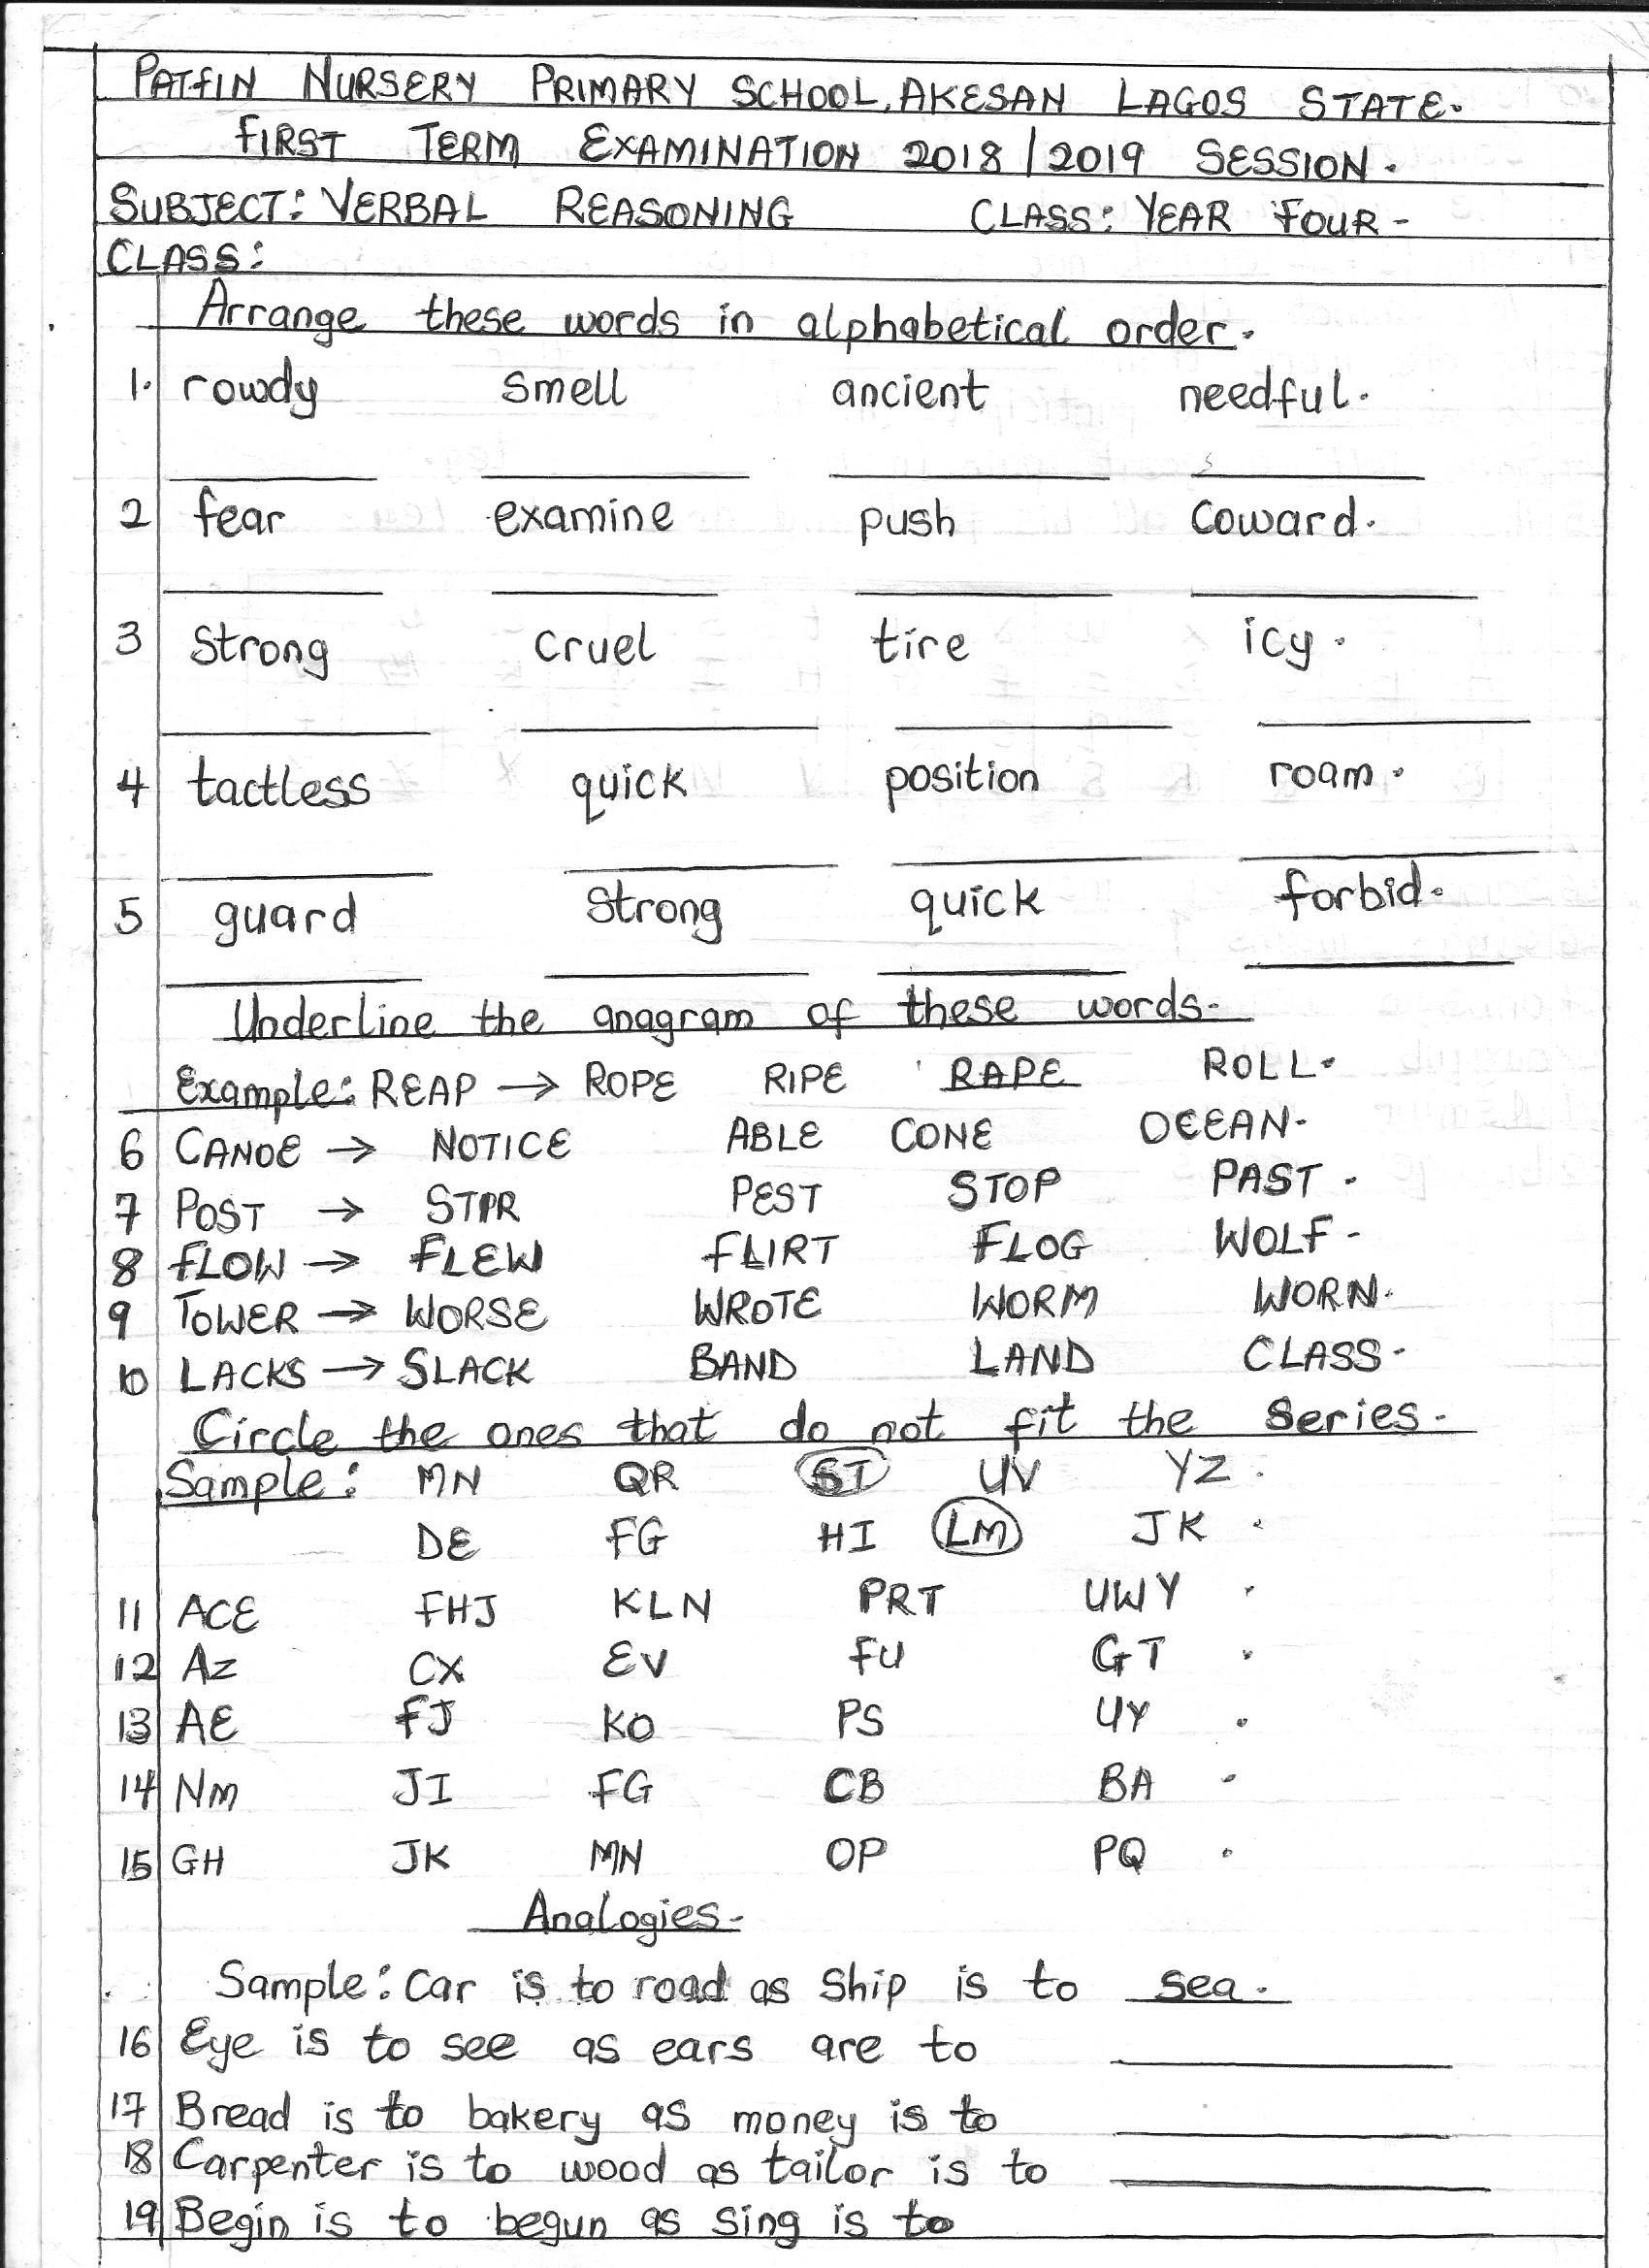 PATFIN NURSERY PRIMARY SCHOOL, AKESAN LAGOS STATE.
FIRST TERM EXAMINATION 2018/2019 SESSION.
SUBJECT: VERBAL REASONING CLASS: YEAR FOUR-
CLASS:
Arrange these words in alphabetical order.
1. rowdy smell ancient needful.
2 fear examine push coward.
3 strong cruel tire icy.
4 tactless quick position roam.
5 guard strong quick forbid.
Underline the anagram of these words.
Example: REAP → ROPE RIPE RAPE ROLL.
6 CANOE → NOTICE ABLE CONE OCEAN.
7 POST → PEST STOP PAST.
8 FLOW → FLEW FLIRT FLOG WOLF-
9 TOWER → WORSE WROTE WORM WORN.
10 LACKS → SLACK BAND LAND CLASS.
Circle the ones that do not fit the series.
Sample: MN QR ST UV YZ.
DE FG HI LM JK.
11 ACE FHJ KLN PRT UWY.
12 AZ CX EV FU GT.
13 AE FJ KO PS UY.
14 NM JI FG CB BA.
15 GH JK MN OP PQ.
Analogies-
Sample: Car is to road as ship is to sea.
16 Eye is to see as ears are to
17 Bread is to bakery as money is to
18 Carpenter is to wood as tailor is to
19 Begin is to begun as sing is to